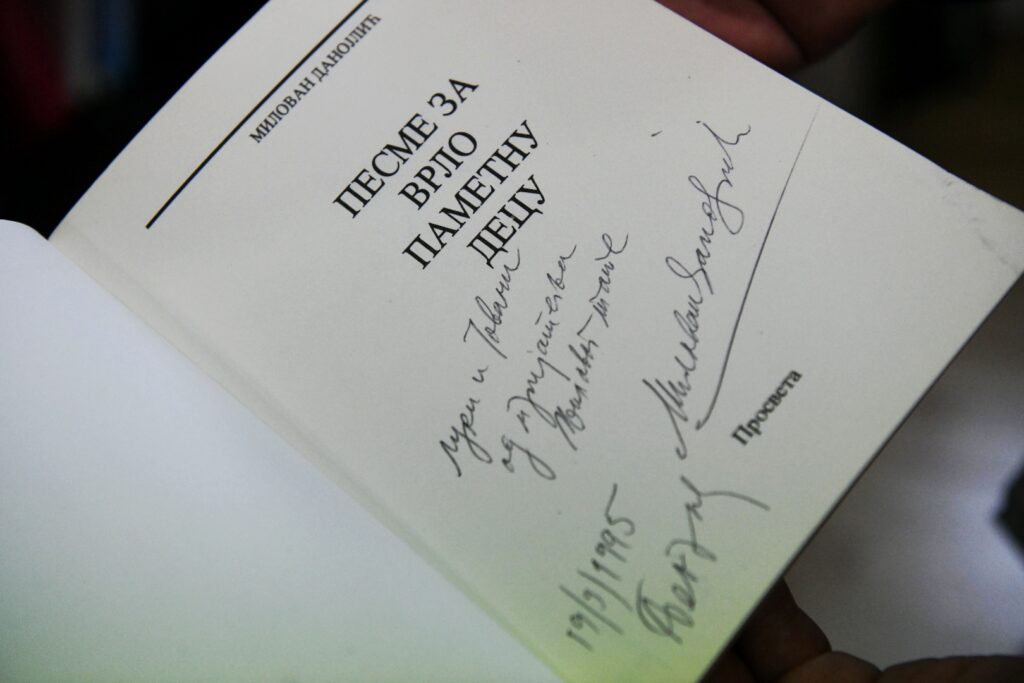 МИЛОВАН ДАНОЈЛИЋ
ПЕСМЕ ЗА
ВРЛО
ПАМЕТНУ
ДЕЦУ
Луки и Јовани
од пријатеља
њиховог тате
Милован Данојлић
19/3/1995
Београд
Просвета